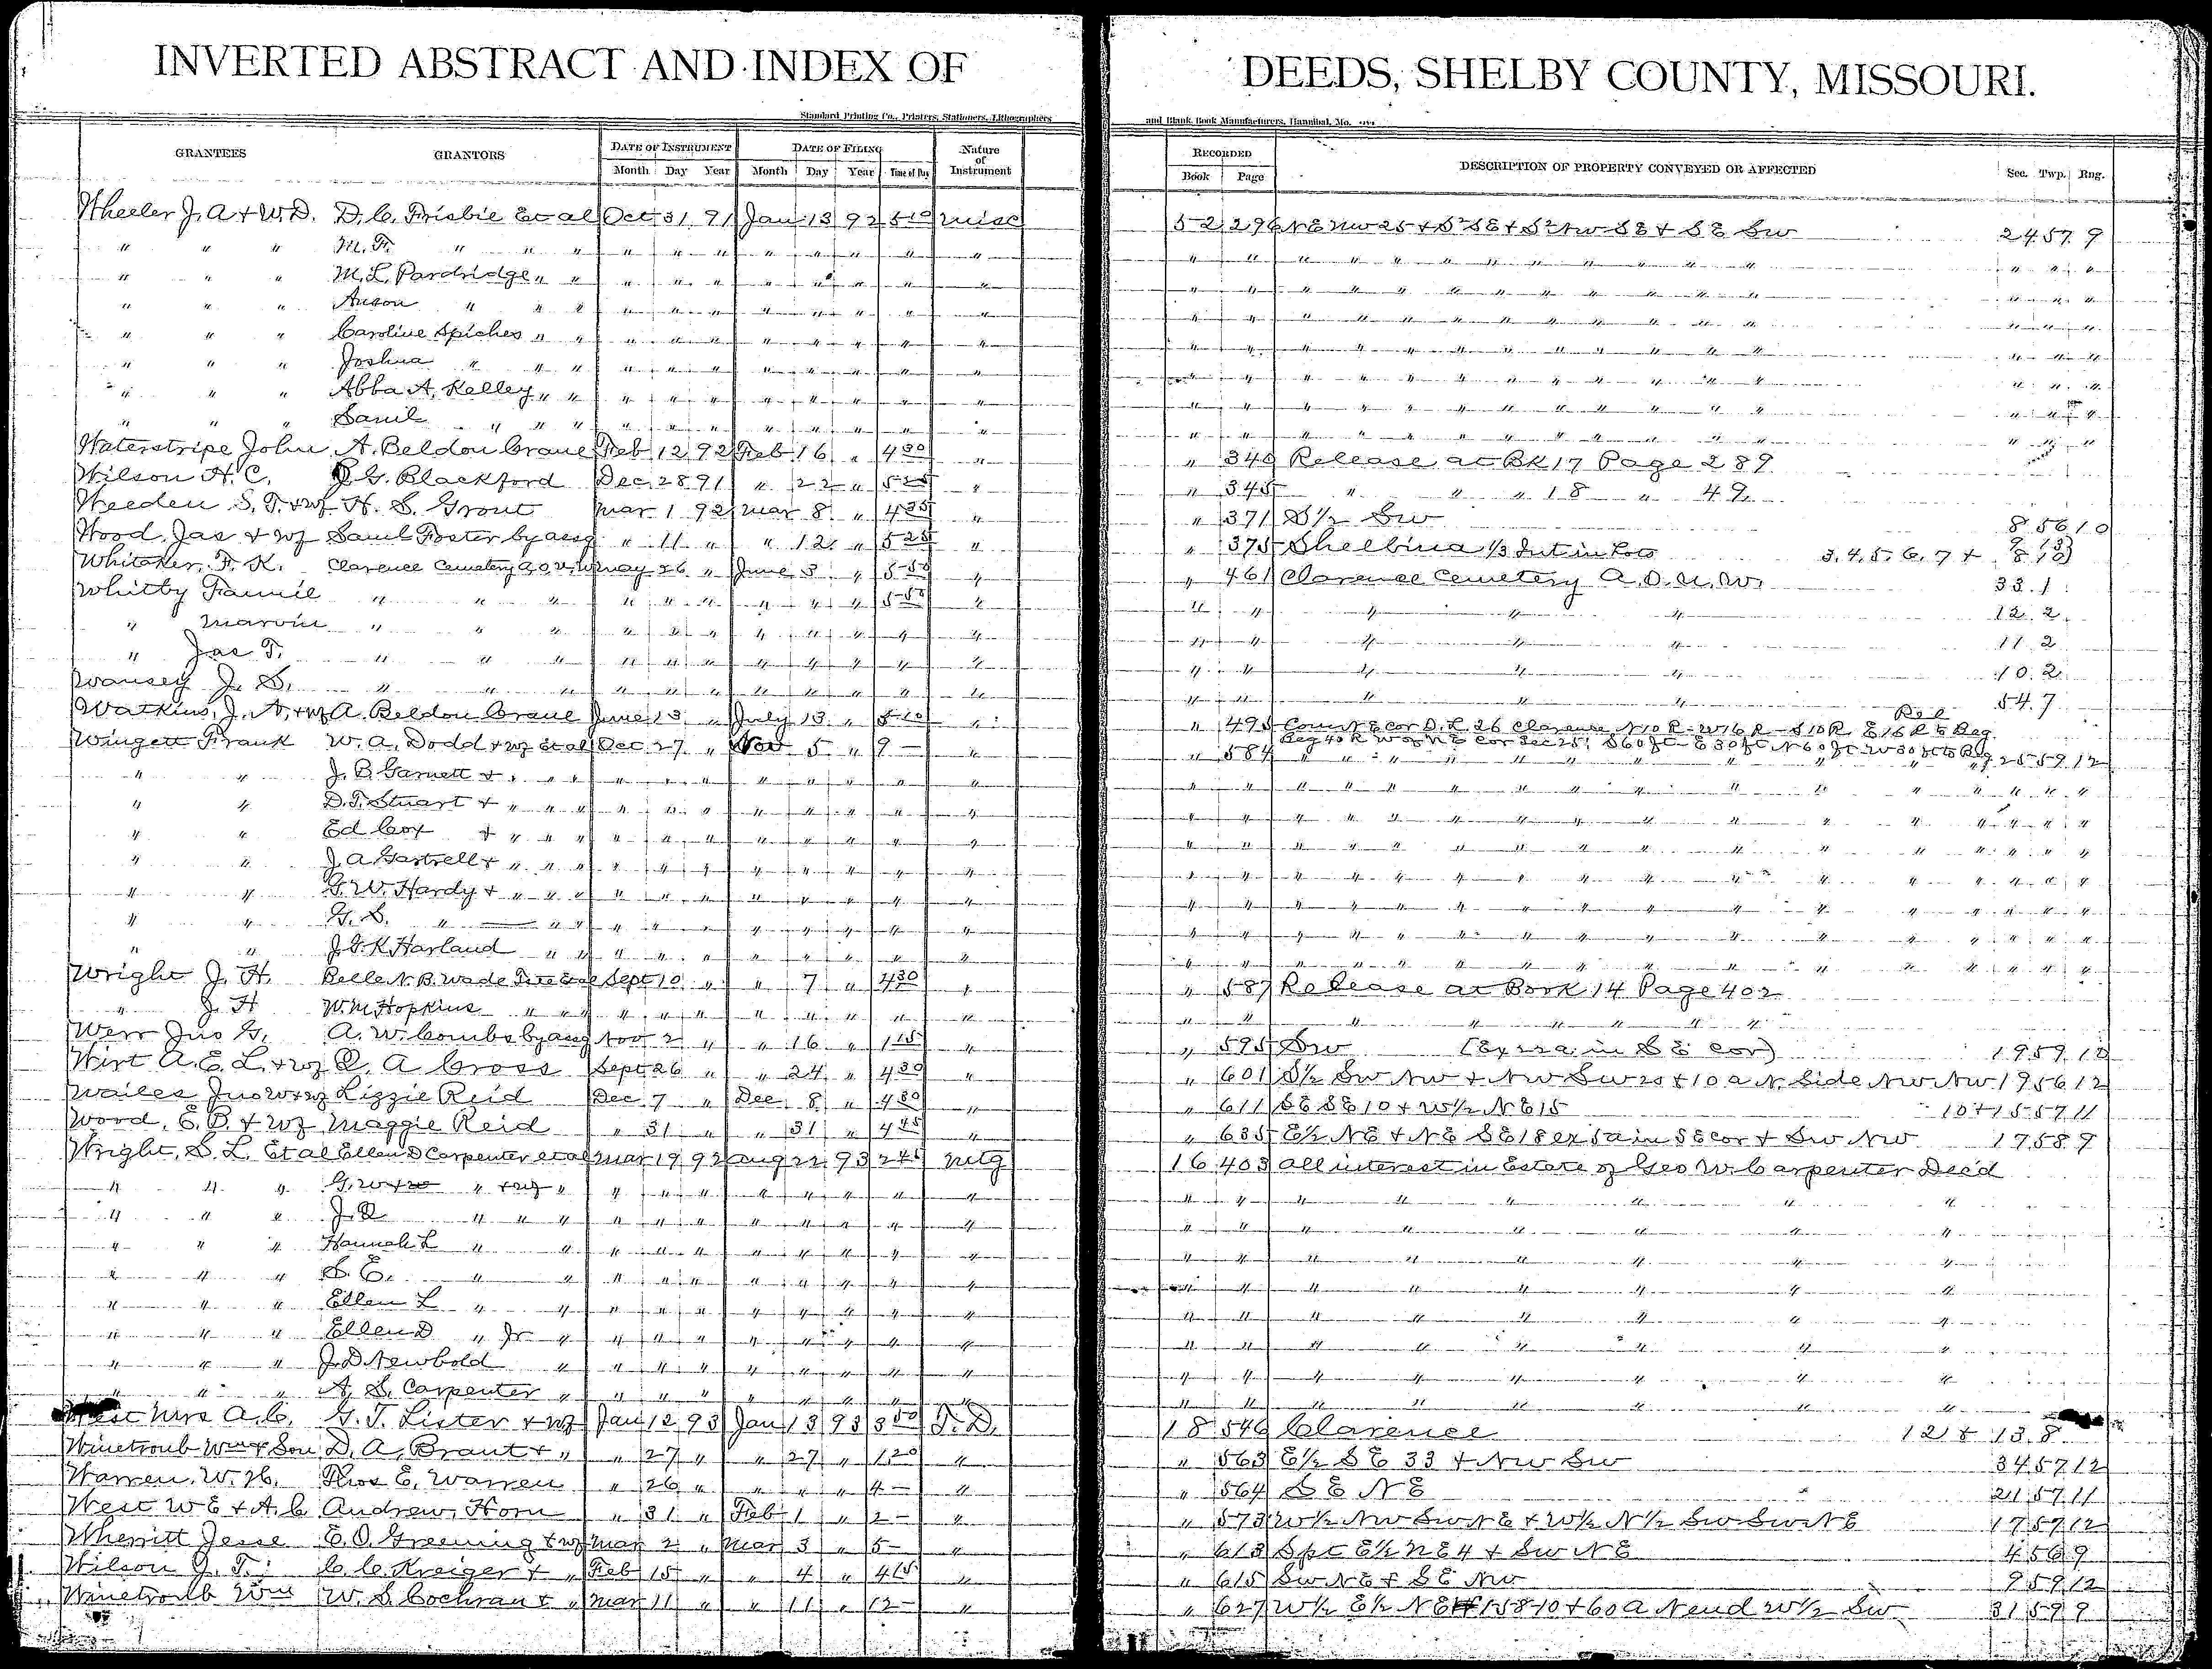 INVERTED ABSTRACT AND INDEX OF DEEDS, SHELBY COUNTY, MISSOURI.
Standard Printing Co., Printers, Stationers, Lithographers and Blank Book Manufacturers, Hannibal, Mo.
GRANTEES GRANTORS DATE OF INSTRUMENT DATE OF FILING Nature of Instrument RECORDED DESCRIPTION OF PROPERTY CONVEYED OR AFFECTED Sec. Twp. Rng.
Month Day Year Month Day Year Time of Day Book Page
Wheeler J. A & W. D. D. C. Frisbie Et al Oct 31 91 Jan 13 92 5 10 Misc 52 296 NE NW 25 & S2 SE & S2 NW SE & SE SW 24 57 9
" " " M. F. " " " " " " " " " " " " "
" " " M. L. Pardridge " " " " " " " " " " " "
" " " Anson " " " " " " " " " " " " "
" " " Caroline Spiches " " " " " " " " " " " "
" " " Joshua " " " " " " " " " " " " "
" " " Abba A. Kelley " " " " " " " " " " " "
" " " Saml " " " " " " " " " " " " "
Waterstripe John A. Beldon Crane Feb 12 92 Feb 16 " 4 30 " " 340 Release at BK 17 Page 289
Wilson H. C. J. G. Blackford Dec 28 91 " 22 " 5 25 " " 345 " " " 18 " 49
Weeden S. T. & wf H. S. Grout Mar 1 92 Mar 8 " 4 35 " " 371 S½ SW 8 56 10
Wood, Jas & wf Saml Foster by assg " 11 " " 12 " 5 25 " " 375 Shelbina 1/3 Int in Lots 3. 4. 5. 6. 7 & 8
Whitaker, F. K. Clarence Cemetery A. O. U. W. May 26 " June 3 " 5 50 " " 461 Clarence Cemetery A. O. U. W. 33. 1
Whitby Fannie " " " " " " " " " 5 50 " " " " " " 12. 2
" Marvin " " " " " " " " " " " " " " " " 11 2
" Jas T. " " " " " " " " " " " " " " " " 10. 2
Wansey J. S. " " " " " " " " " " " " " " " " 54. 7
Watkins, J. A. & wf A. Beldon Crane June 13 " July 13 " 5 10 " " 495 Com NE cor D. L. 26 Clarence N 10 R - W 16 R - S 10 R E 16 R to Beg. Rel
Wingett Frank W. A. Dodd & wf Et al Dec 27 " Nov 5 " 9 - " " 584 Beg 40 R W of NE cor Sec 25; S 60 ft - E 30 ft N 60 ft W 30 ft to Beg 25 59 12
" " J. B. Garnett & " " " " " " " " " " " " "
" " D. T. Stuart & " " " " " " " " " " " " "
" " Ed Cox & " " " " " " " " " " " " "
" " J. A Gastrell & " " " " " " " " " " " " "
" " G. W. Hardy & " " " " " " " " " " " " "
" " G. S. " " " " " " " " " " " " "
" " J. G. K. Harland " " " " " " " " " " " "
Wright J. H. Belle N. B. Wade Et al Sept 10 " " 7 " 4 30 " " 587 Release at Book 14 Page 402
" J. H W. M Hopkins " " " " " " " " " " " " " " " " "
Werr Jno G. A. W. Combs by assg Nov 2 " " 16 " 1 15 " " 595 SW (Ex in SE cor) 19 59 12
Wirt A. E. L. & wf Q. A Cross Sept 26 " " 24 " 4 30 " " 601 S½ SW NW & NW SW 20 & 10 a N. Side NW NW 19 56 12
Wailes Jno W & wf Lizzie Reid Dec 7 " Dec 8 " 4 30 " " 611 SE SE 10 & W½ NE 15 10 & 15 57 11
Wood, E. B. & wf Maggie Reid " 31 " " 31 " 4 45 " " 635 E½ NE & NE SE 18 ex 5 a in SE cor & SW NW 17 58 9
Wright, S. L. Et al Ellen D Carpenter et al Mar 19 92 Aug 22 93 2 45 Mtg 16 403 All interest in Estate of Geo W. Carpenter Dec'd
" " " G. W. " & wf " " " " " " " " " " " "
" " " J. Q " " " " " " " " " " " " "
" " " Hannah L " " " " " " " " " " " "
" " " S. E. " " " " " " " " " " " "
" " " Ellen L " " " " " " " " " " " "
" " " Ellen D " Jr " " " " " " " " " " "
" " " J. D Newbold " " " " " " " " " " "
" " " A. S. Carpenter " " " " " " " " " " "
West Mrs A. C. G. T. Lister & wf Jan 12 93 Jan 13 93 3 50 T. D. 18 546 Clarence 12 & 13. 8
Winetroub Wm & Son D. A. Brant & " " 27 " " 27 " 1 20 " " 563 E½ SE 33 & NW SW 34 57 12
Warren, W. H. Thos E. Warren " 26 " " " " 4 - " " 564 SE NE 21 57 11
West W E & A. C Andrew Horn " 31 " Feb 1 " 2 - " " 573 W½ NW SW NE & W½ N½ SW SW NE 17 57 12
Wherritt Jesse E. O. Greening & wf Mar 2 " Mar 3 " 5 - " " 613 Spt E½ NE 4 & SW NE 4 56 9
Wilson J. T. C. C. Kreiger & " Feb 15 " " 4 " 4 15 " " 615 SW NE & SE NW 9 59 12
Winetroub Wm W. S Cochran & " Mar 11 " " 11 " 12 - " " 627 W½ E½ NE 15 8 10 & 60 A N end W½ SW 31 59 9